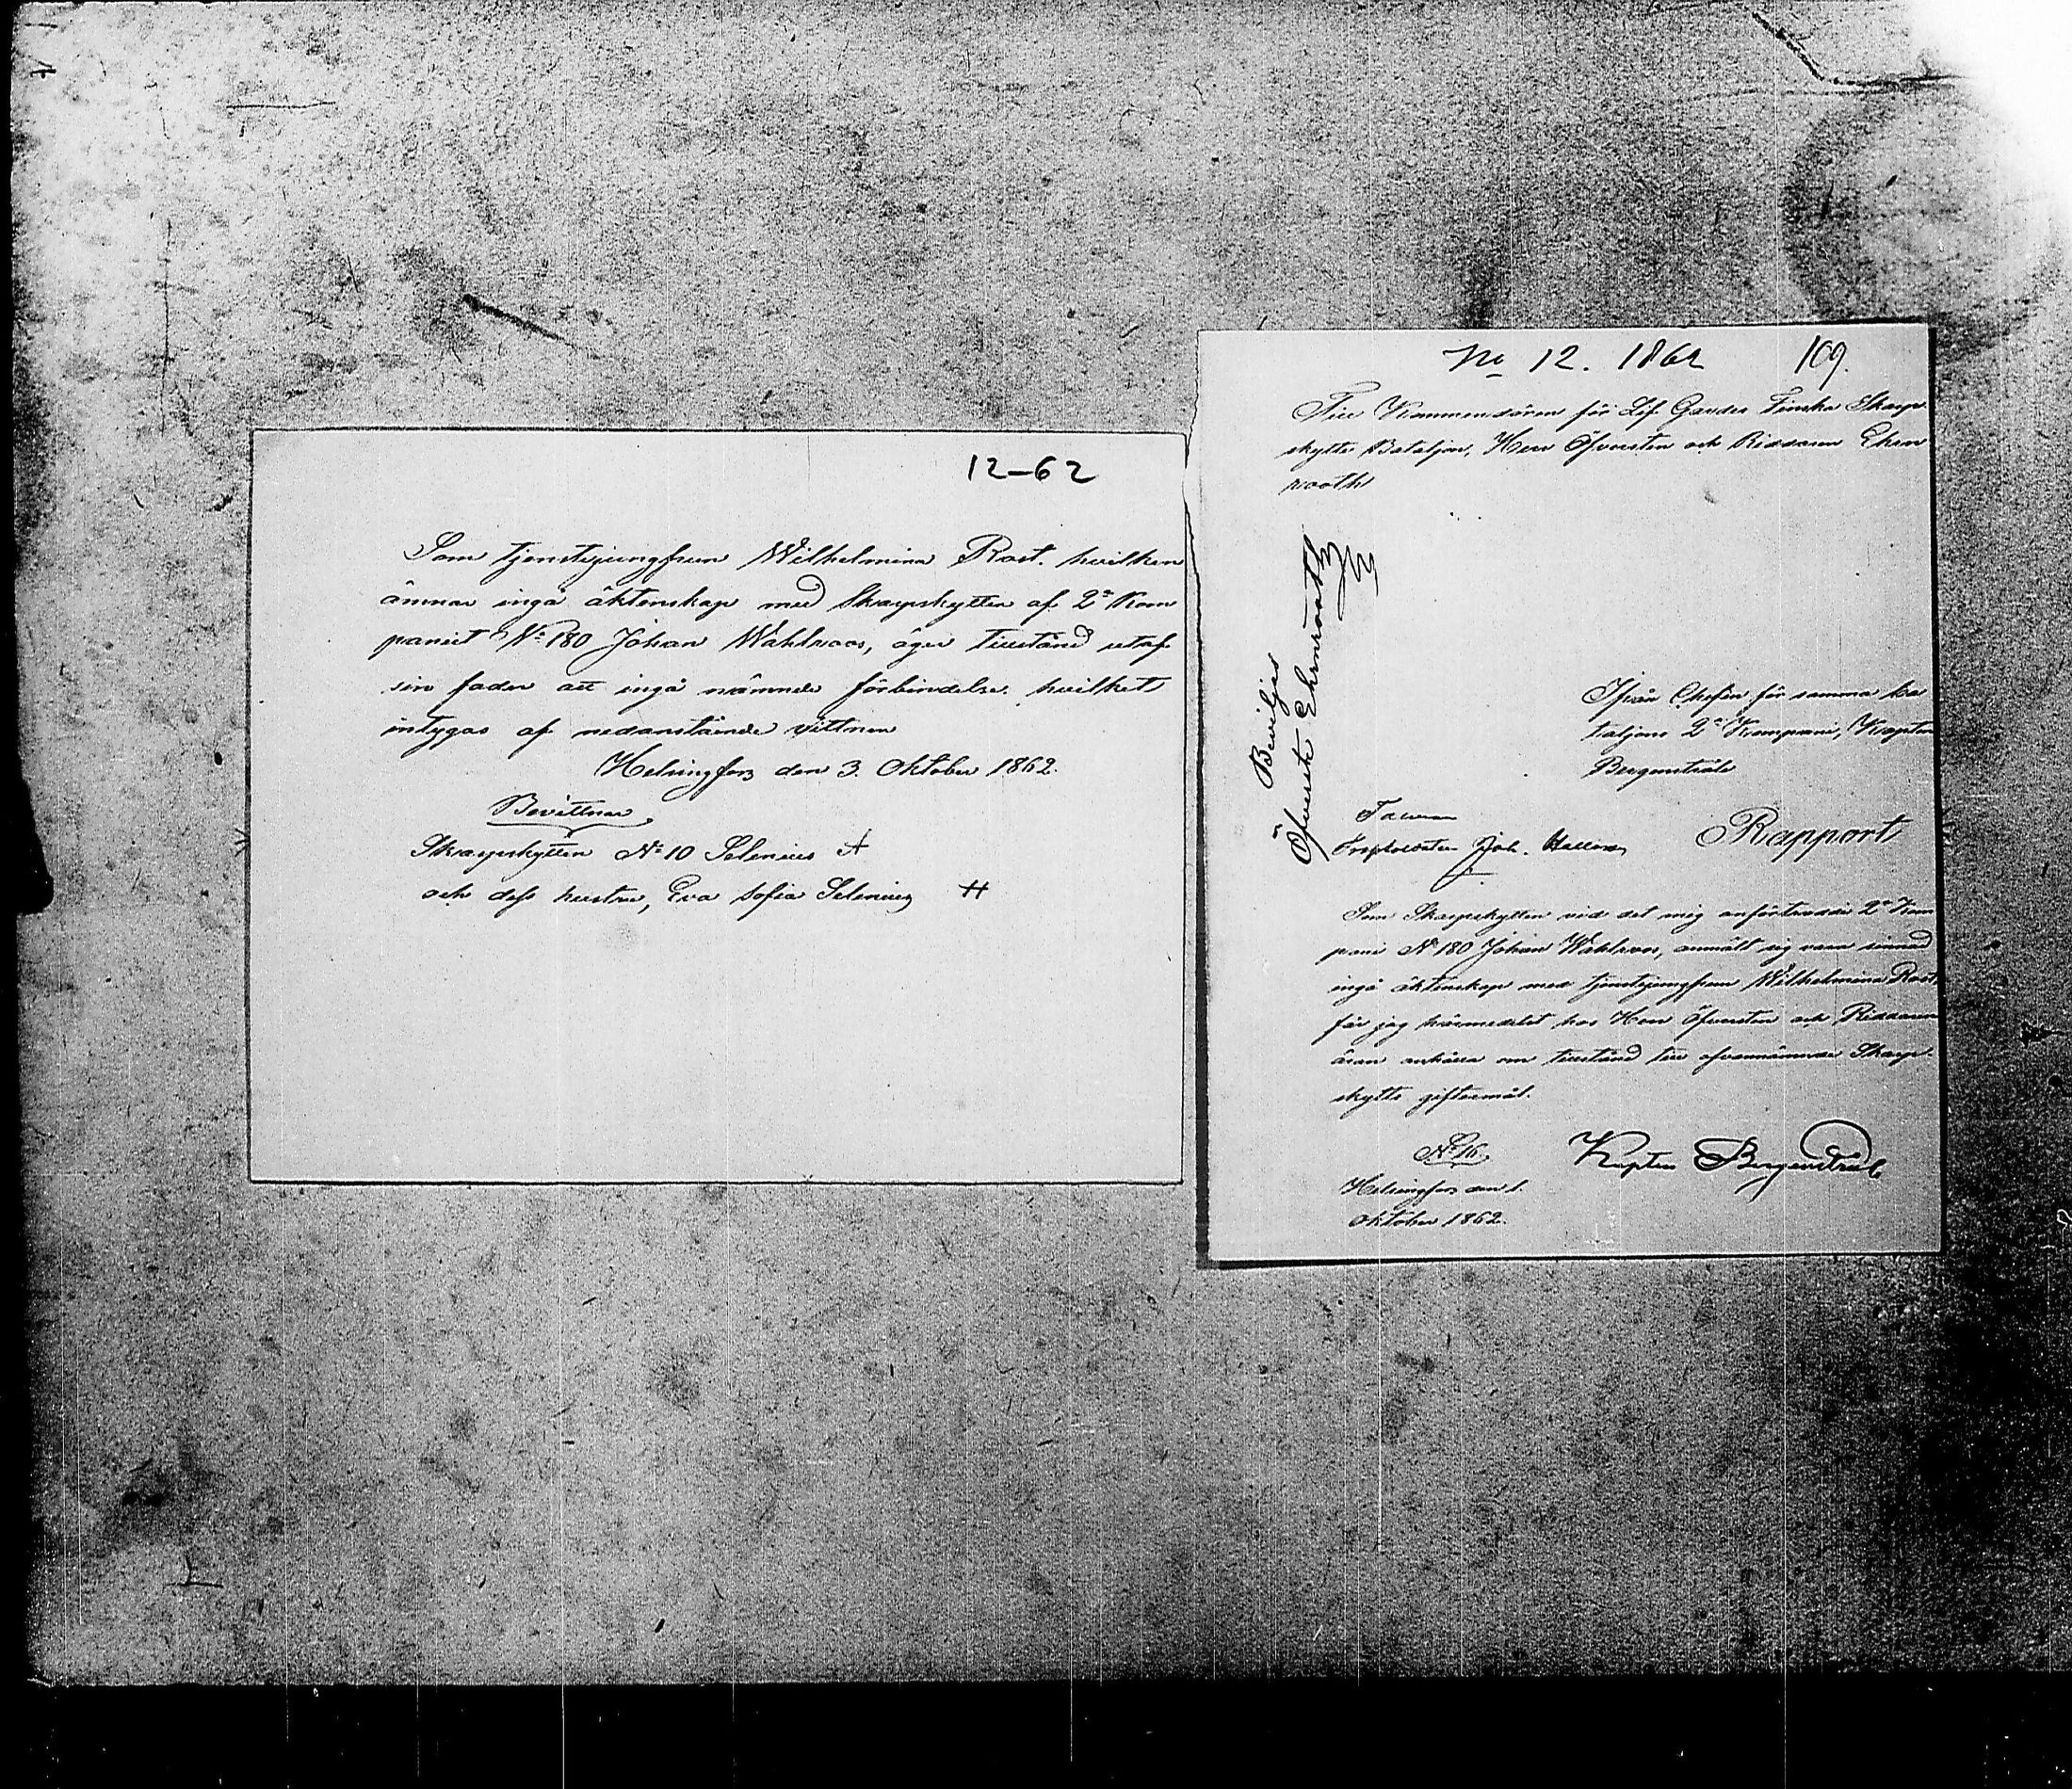 12-62
Som tjenstejungfrun Wilhelmina Rost. hvilken
ämnar ingå äktenskap med Skarpskytten af 2:a Kom
paniet N:o 180 Johan Wahlroos, äger tillstånd utaf
sin fader att ingå nämnde förbindelse. hvilket
intygas af nedanstående vittnen
Helsingfors den 3. Oktober 1862.
Bevittnar
Skarpskytten N:o 10 Selenius
och dess hustru, Eva Sofia Selenius
No 12. 1862 109.
Till Kommendören för Lif Gardes Finska Skarp
skytte Bataljon, Herr Öfversten och Riddaren Ehrn
rooth
Beviljas
Öfverste Ehrnrooth
Ifrån Chefen för samma ba
taljons 2:a Kompani, Kapten
Bergenstråle
Joh.
Rapport
Som Skarpskytten vid det mig anförtrodde 2:a Kom
pani N:o 180 Johan Wahlroos, anmält sig vara sinnad
ingå äktenskap med tjenstejungfrun Wilhelmina Rost,
får jag härmedelst hos Herr Öfversten och Riddaren
äran anhålla om tillstånd till ofvannämnde Skarp-
skytts giftermål.
N:o 16.
Kapten Bergenstråle
Helsingfors den 1.
Oktober 1862.